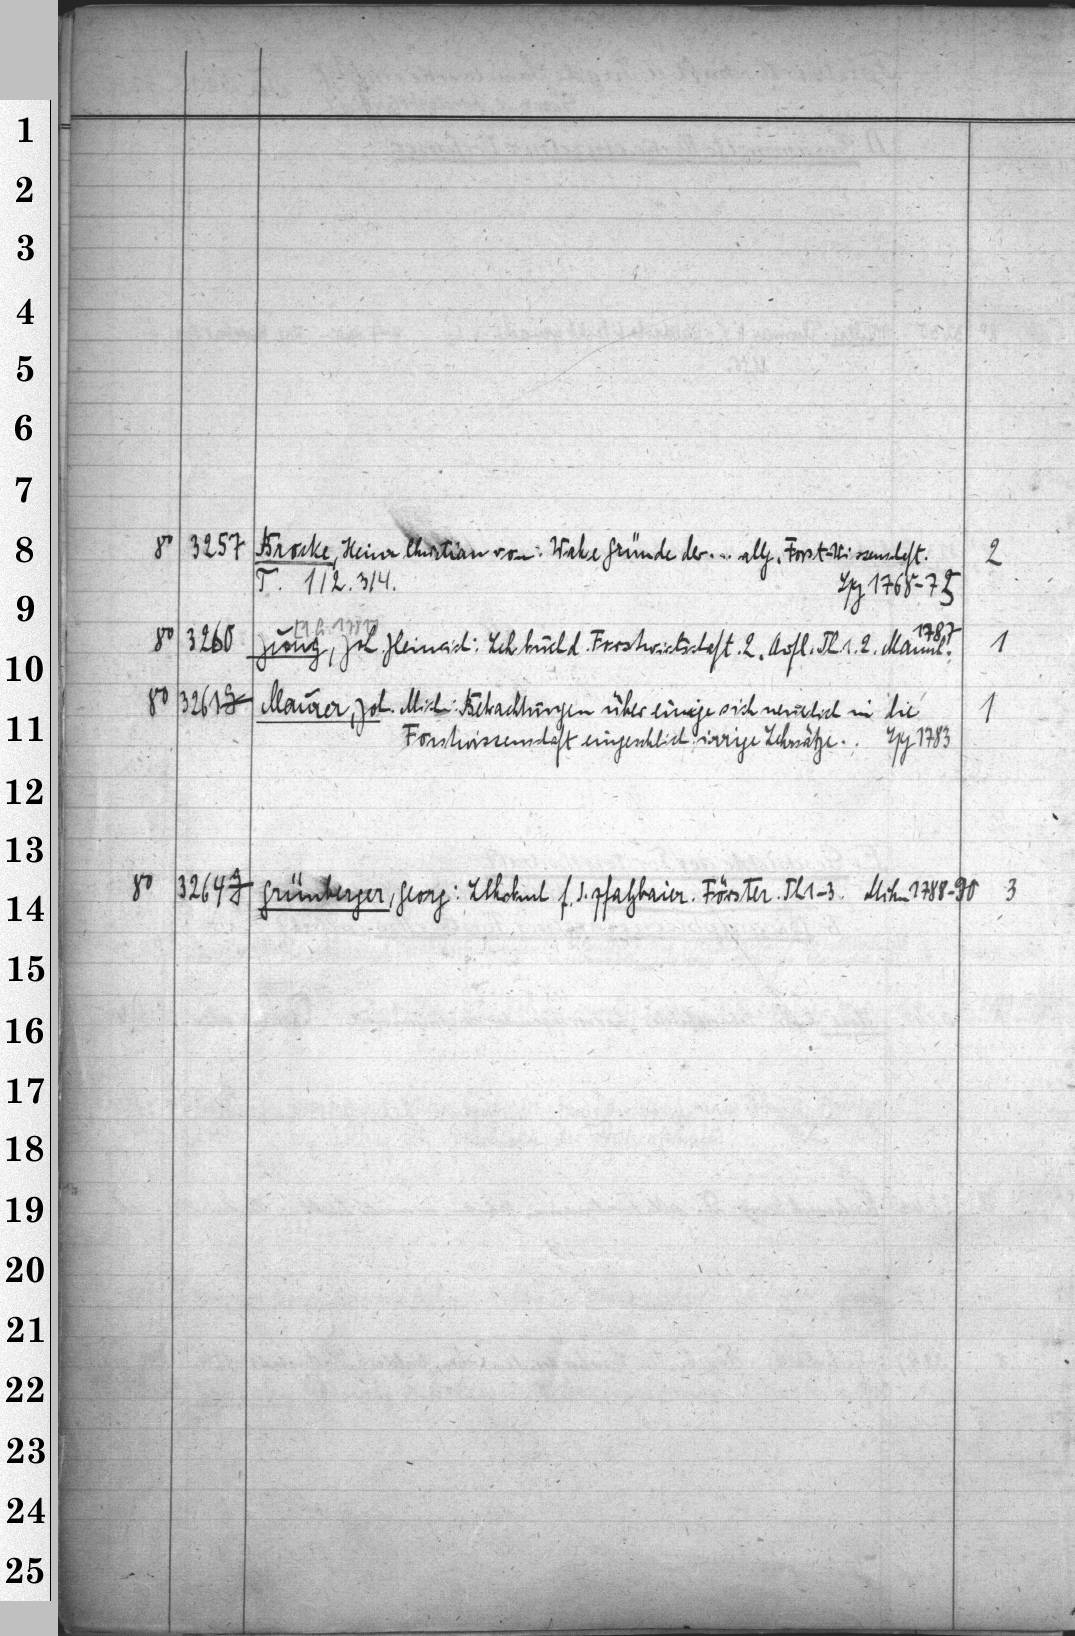 1
2
3
4
5
6
7
8
9
10
11
12
13
14
15
16
17
18
19
20
21
22
23
24
25
8° 3257 Brocke, Heinr. Christian von: Wahre Gründe der... allg. Forst-Wissenschft. 2
T. 1/2. 3/4. Lpz 1768-75
8° 3260 Jung, Joh. Heinrich: Lehrbuch d. Forstwirtschaft. 2. Aufl. Th 1. 2. Mannh. 1787 1
8° 3261 Maurer, Joh. Mich: Betrachtungen über einige sich neuerlich in die 1
Forstwissenschaft eingeschlich. irrige Lehrsätze.. Lpz 1783
8° 3264 Grünberger, Georg: Lehrbuch f. d. pfalzbaier. Förster. Th 1-3. Mchn 1788-90 3